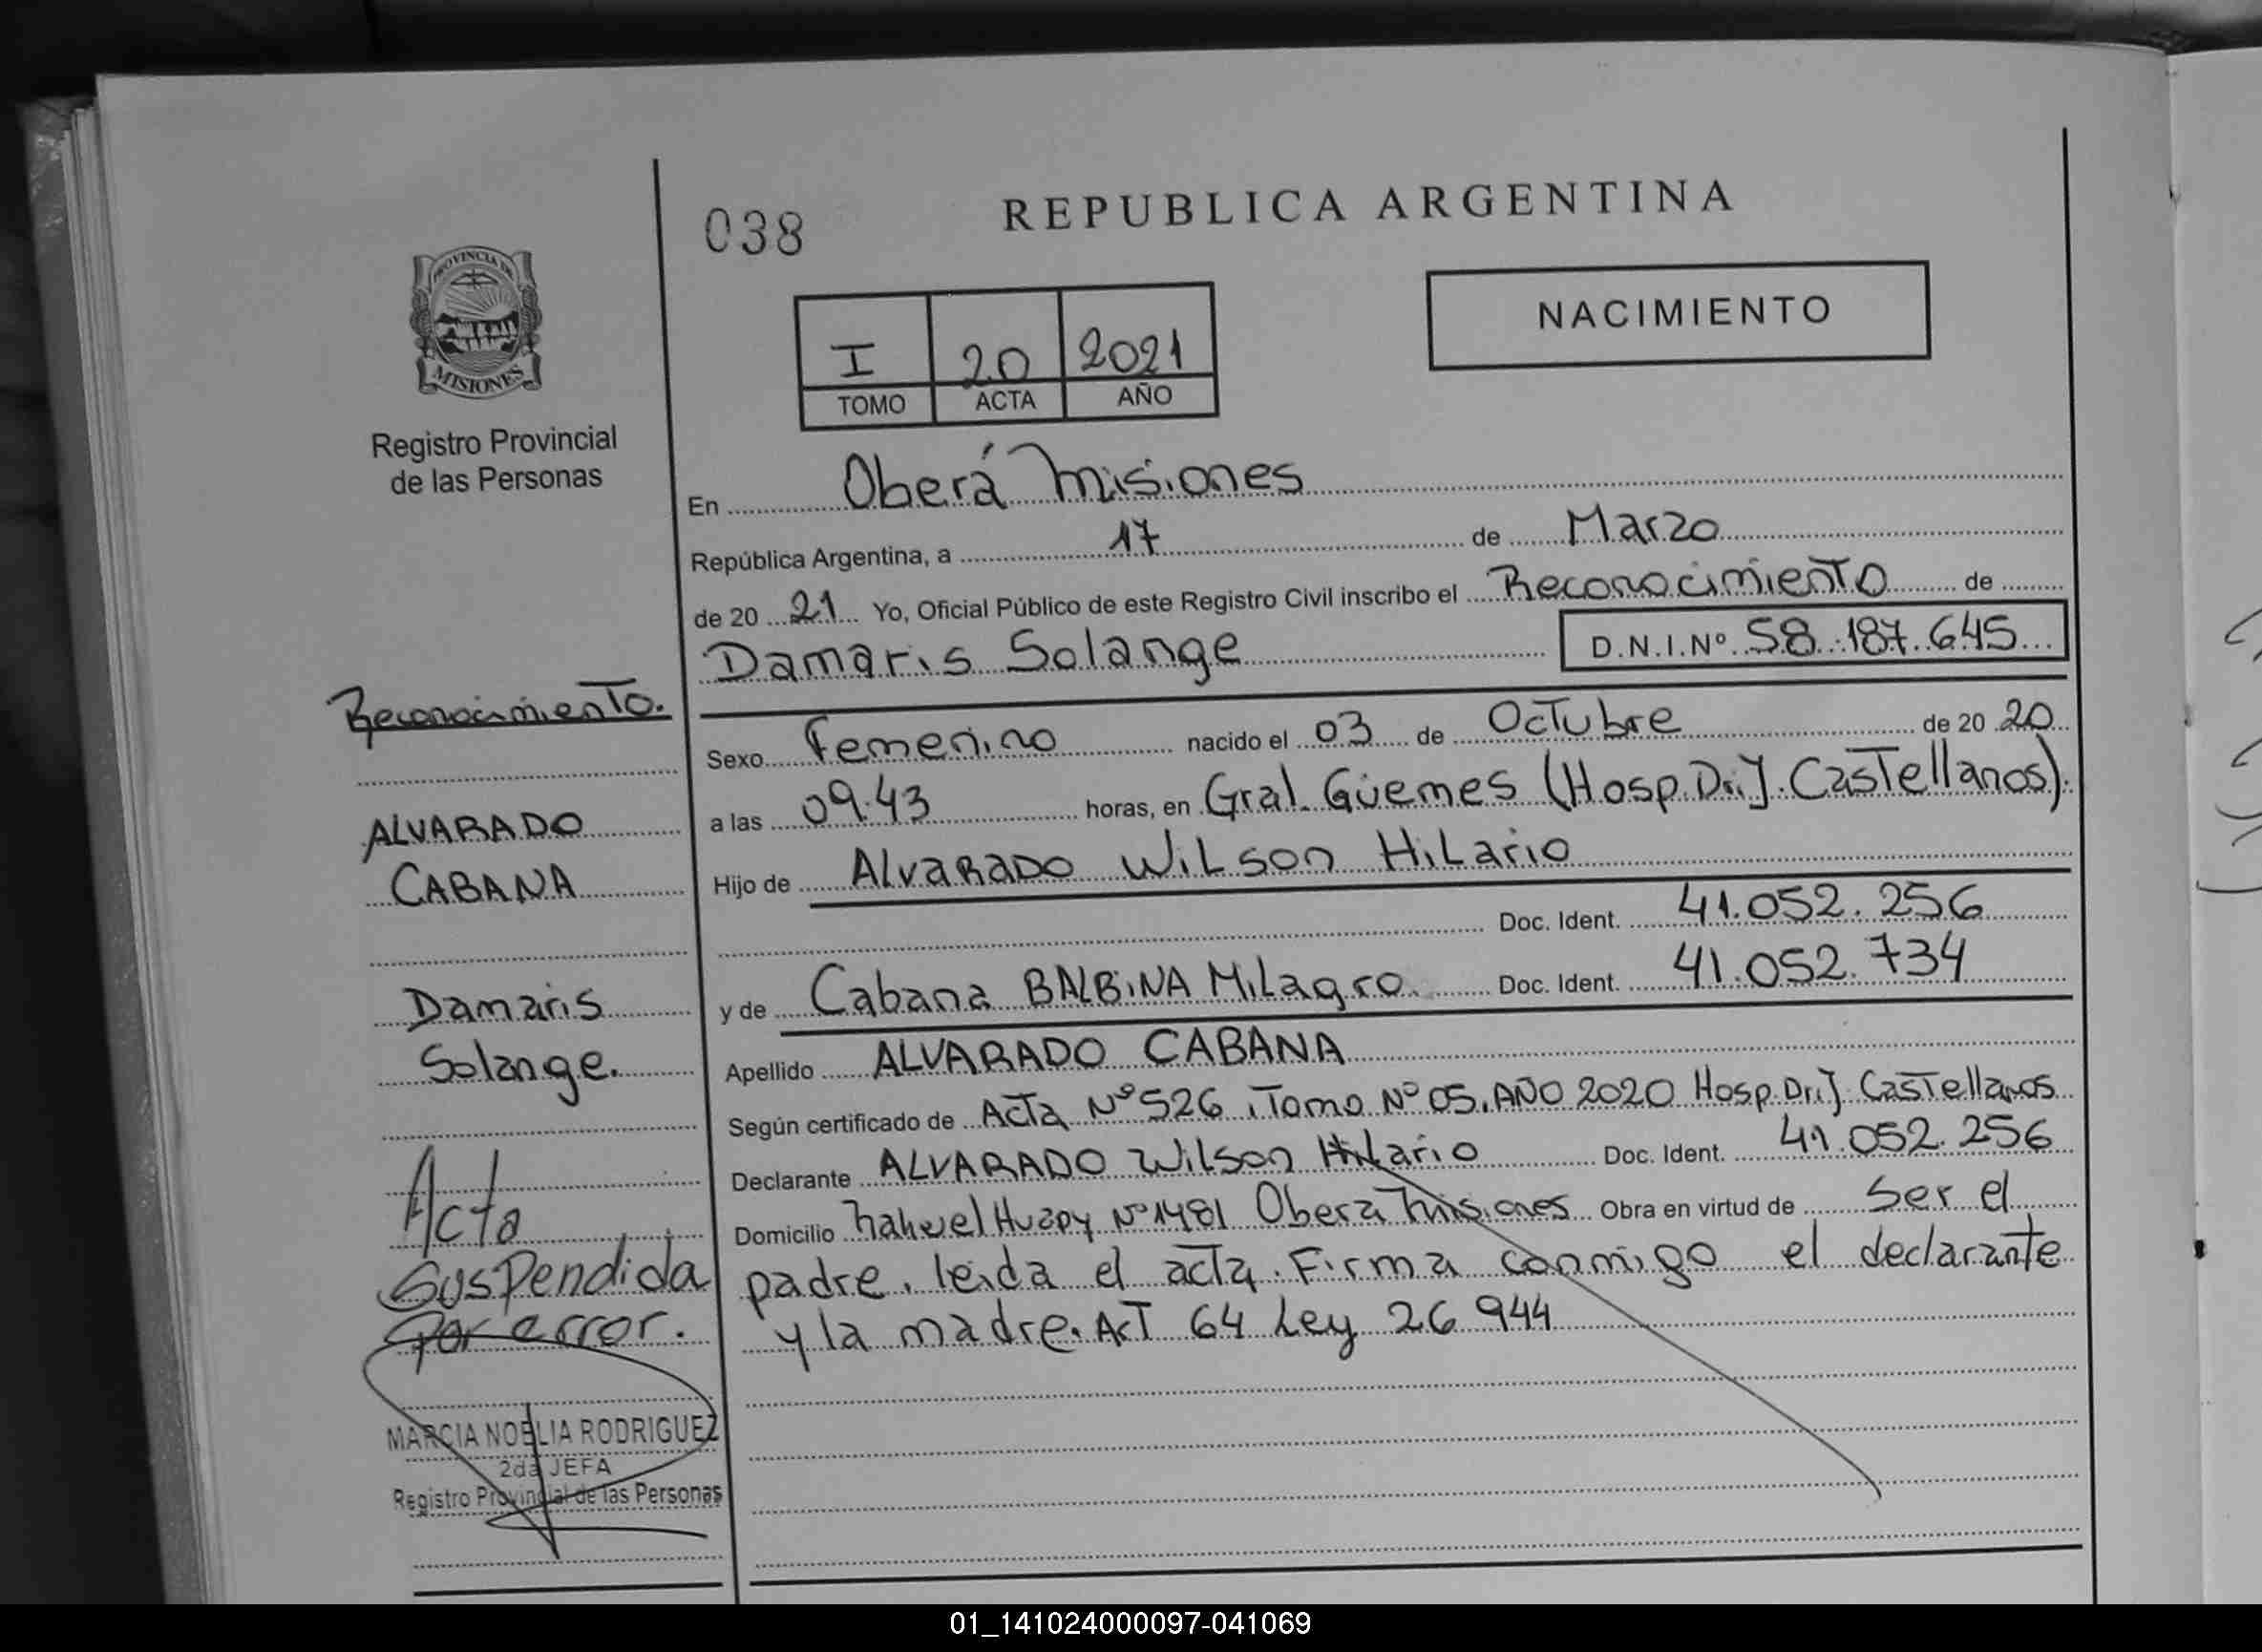 038
REPUBLICA ARGENTINA
PROVINCIA DE
MISIONES
Registro Provincial
de las Personas
NACIMIENTO
I 20 2021
TOMO ACTA AÑO
En Oberá Misiones
República Argentina, a 17 de Marzo
de 20 21 Yo, Oficial Público de este Registro Civil inscribo el Reconocimiento de
Damaris Solange D.N.I.Nº 58.187.645
Sexo Femenino nacido el 03 de Octubre de 20 20
a las 09.43 horas, en Gral. Güemes (Hosp. Dr. J. Castellanos).
Hijo de Alvarado Wilson Hilario
Doc. Ident. 41.052.256
y de Cabana Balbina Milagro. Doc. Ident. 41.052.734
Apellido ALVARADO CABANA
Según certificado de Acta Nº 526, Tomo Nº 05, AÑO 2020 Hosp. Dr. J. Castellanos
Declarante ALVARADO Wilson Hilario Doc. Ident. 41.052.256
Domicilio Nahuel Huapy Nº 1481 Oberá Misiones Obra en virtud de Ser el
padre, leída el acta. Firma conmigo el declarante
y la madre. Art 64 Ley 26 944
Reconocimiento.
ALVARADO
CABANA
Damaris
Solange.
Acta
Suspendida
por error.
MARCIA NOELIA RODRIGUEZ
2da JEFA
Registro Provincial de las Personas
01_141024000097-041069